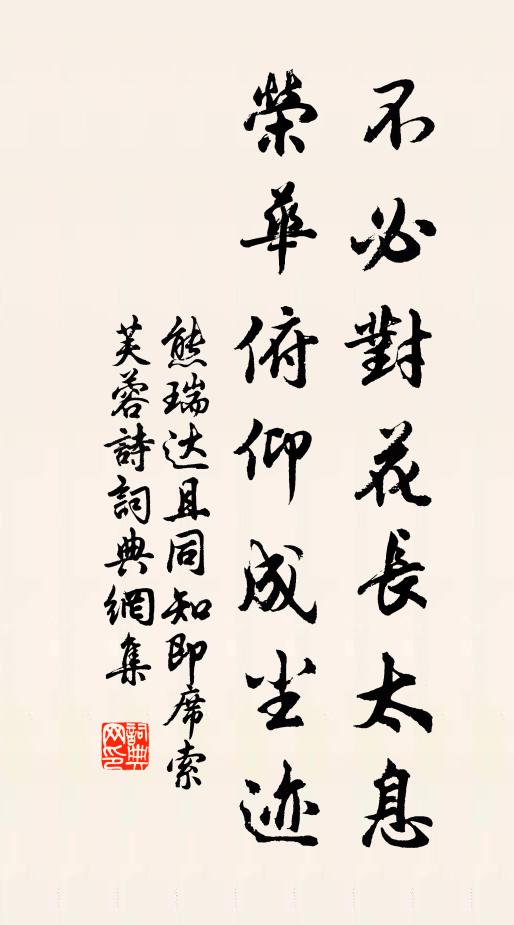 不必對花長太息
榮華俯仰成尘迹
熊瑞达且同知即席索
芙蓉詩詞典網集
詞典
网印